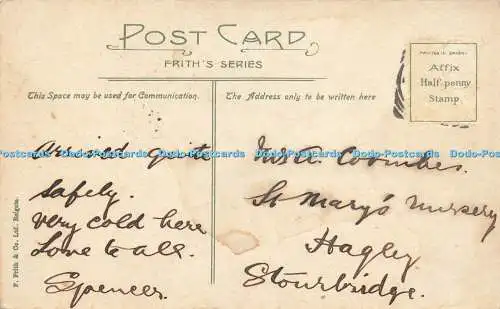 POST CARD
FRITH'S SERIES
PRINTED IN SAXONY
Affix
Half-penny
Stamp
This Space may be used for Communication.
The Address only to be written here
Arrived quite
safely.
very cold here
Love to all.
Spencer.
Mr A. Coombes.
St Mary's Nursery
Hagley
Stourbridge.
F. Frith & Co. Ltd. Reigate.
Dodo-Postcards Dodo-Postcards Dodo-Postcards Dodo-Postcards Dodo-Postcards Dodo-Postcards